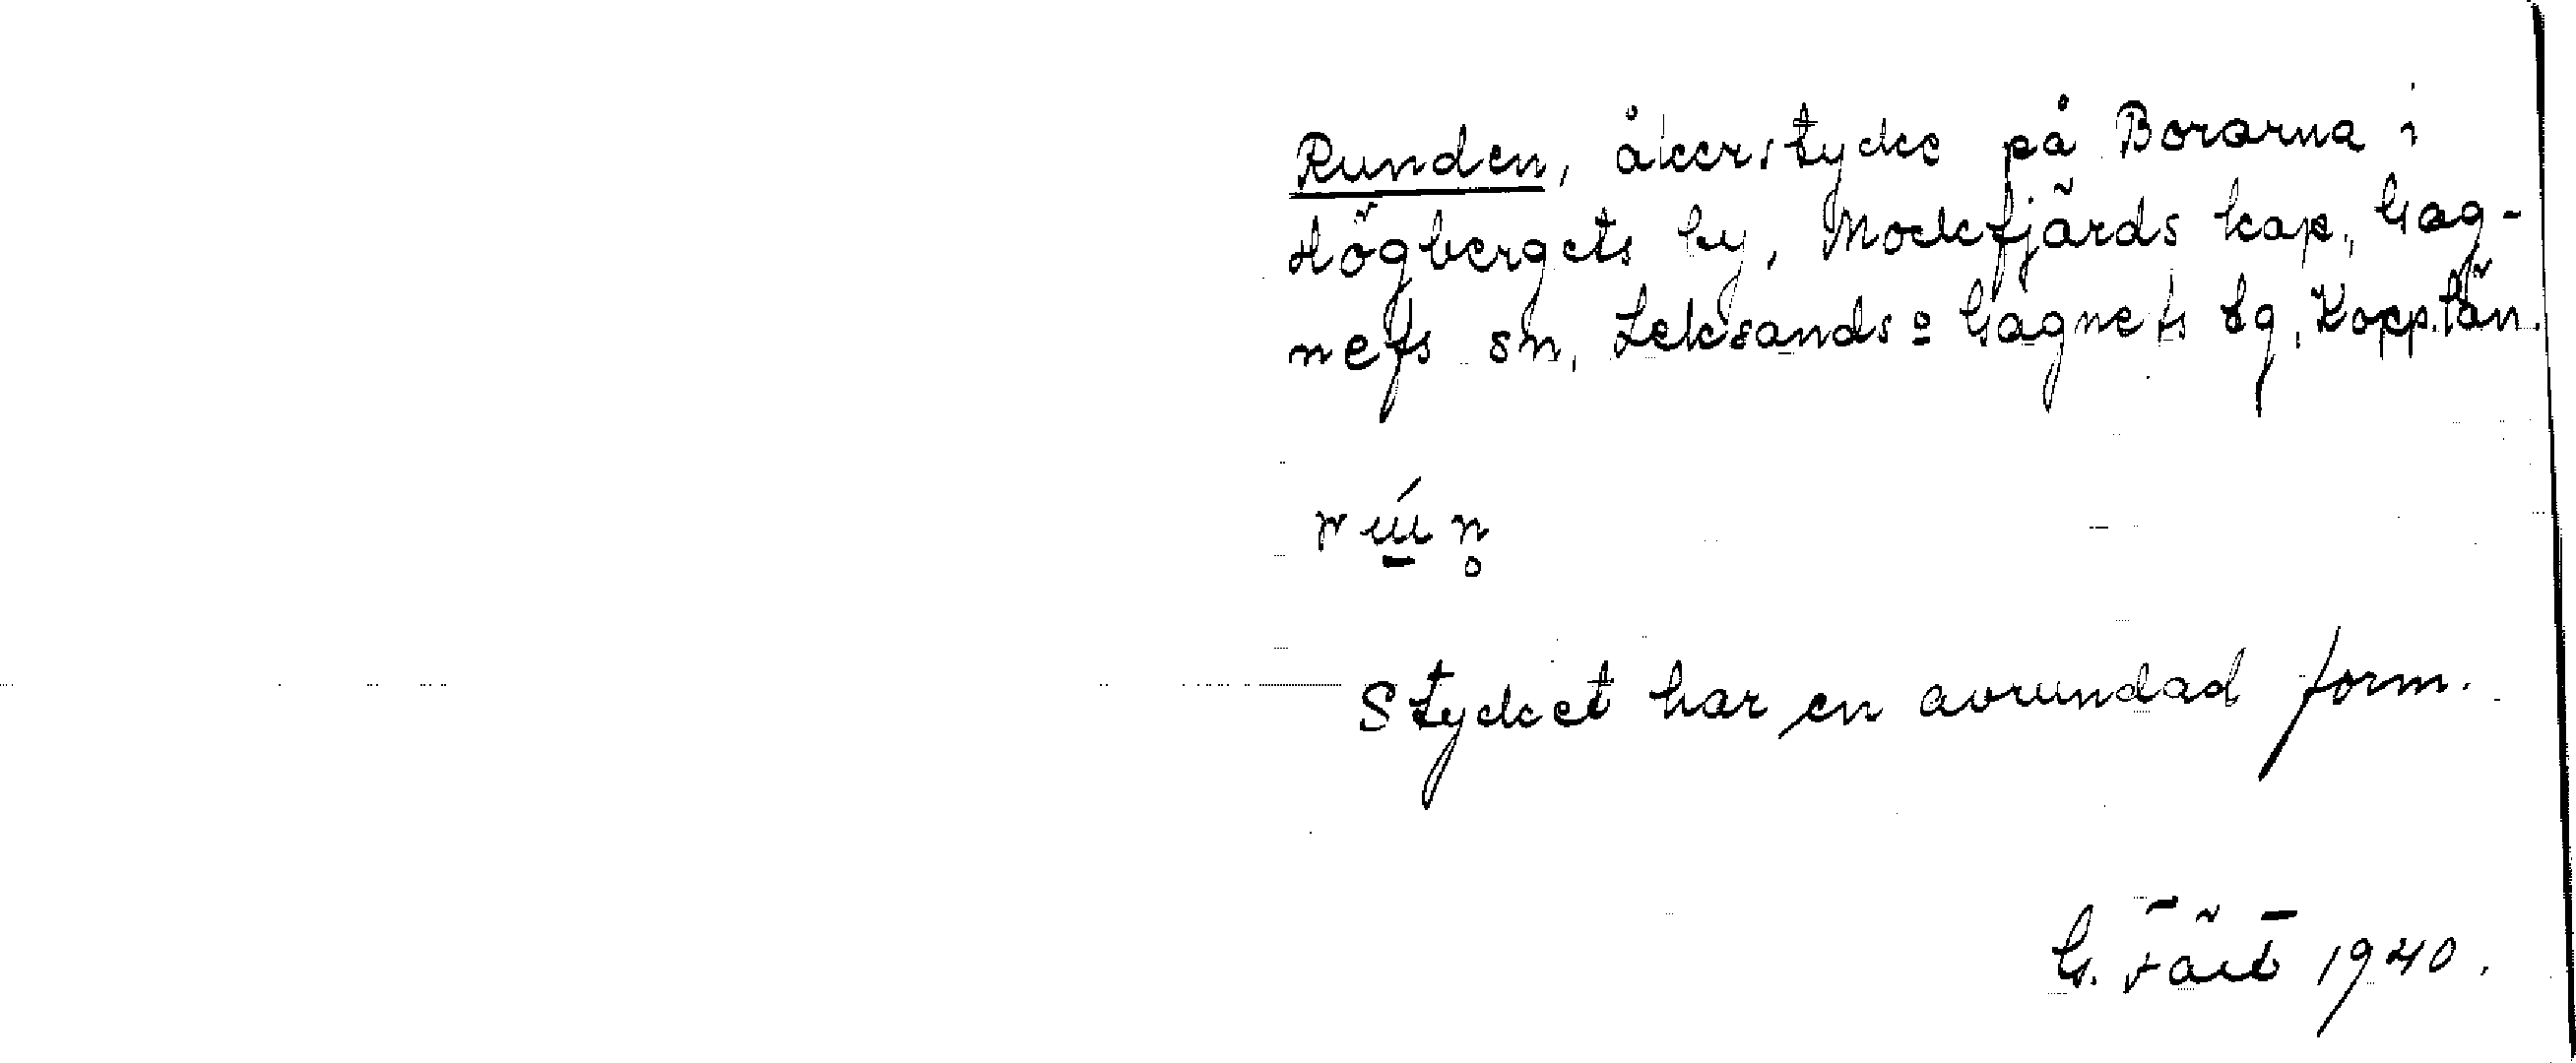 Runden, åkerstycke på Borarna i
Högbergets by, Mockfjärds kap., Gag-
nefs sn, Leksands o Gagnefs tg, Kopp.län.
Stycket har en avrundad form.
G. 1940.